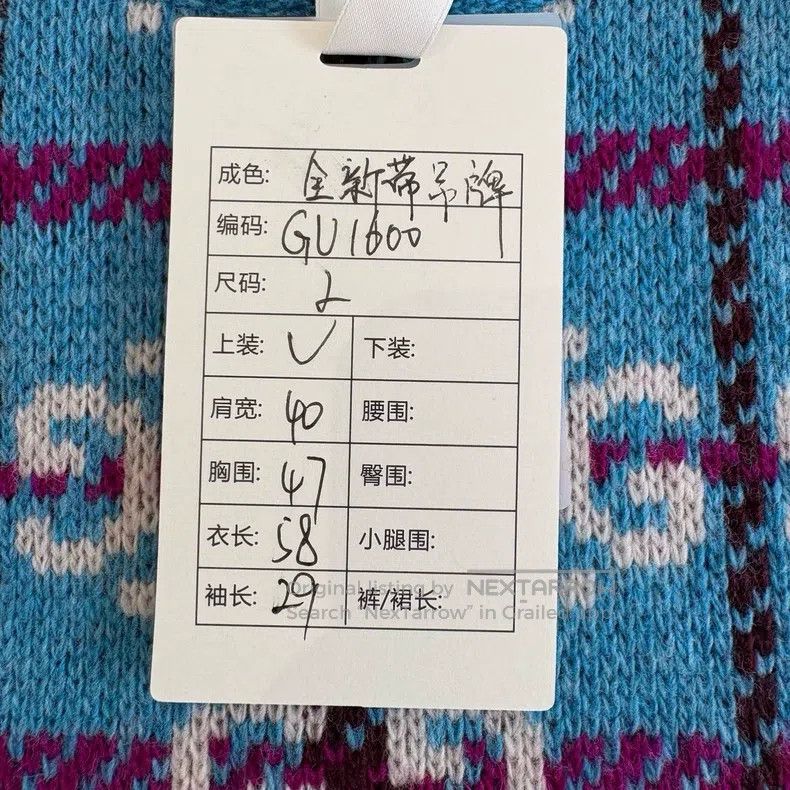 成色: 全新带吊牌
编码: GU1600
尺码: 2
上装: ✓ 下装:
肩宽: 40 腰围:
胸围: 47 臀围:
衣长: 58 小腿围:
袖长: 29 裤/裙长:
Original listing by NEXTARROW
Search "NexTarrow" in Crailer App